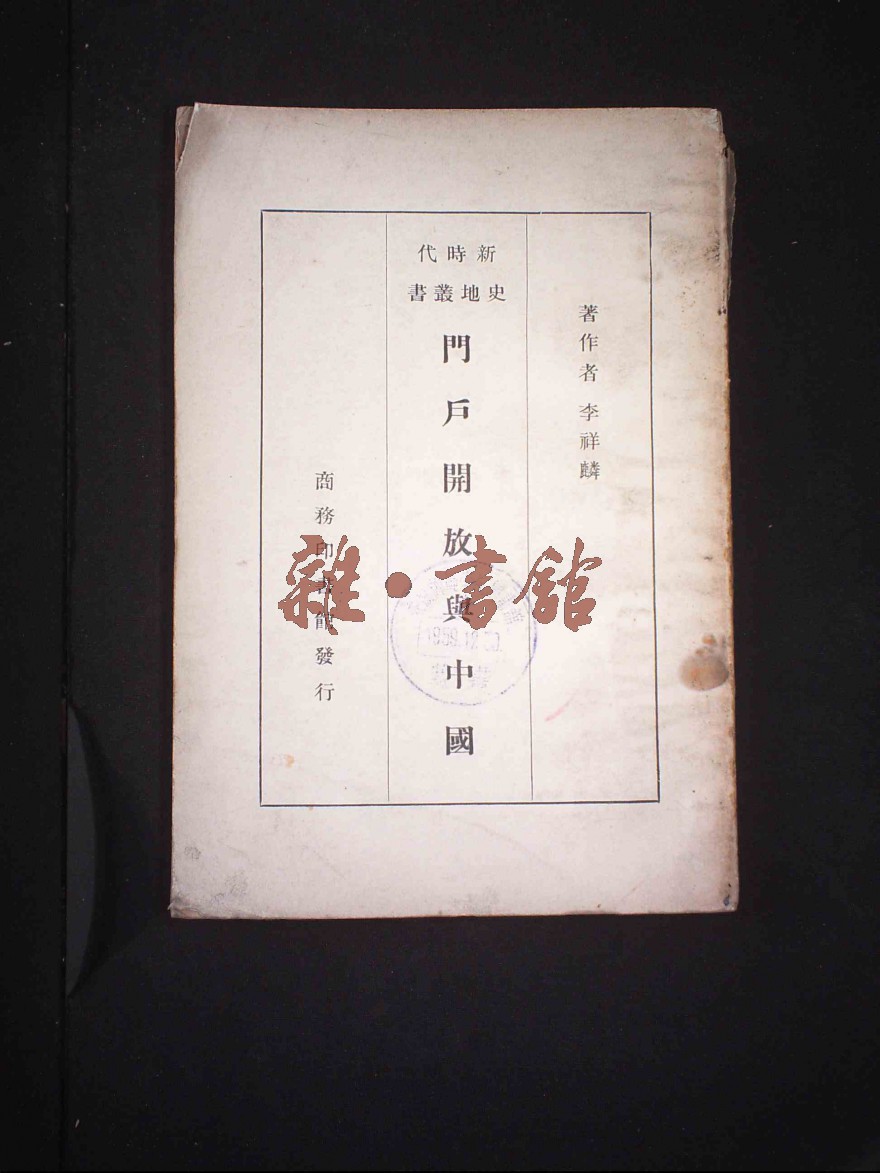 著作者 李祥麟
新時代
史地叢書
門戶開放與中國
商務印書館發行
雜·書館
1959.12.